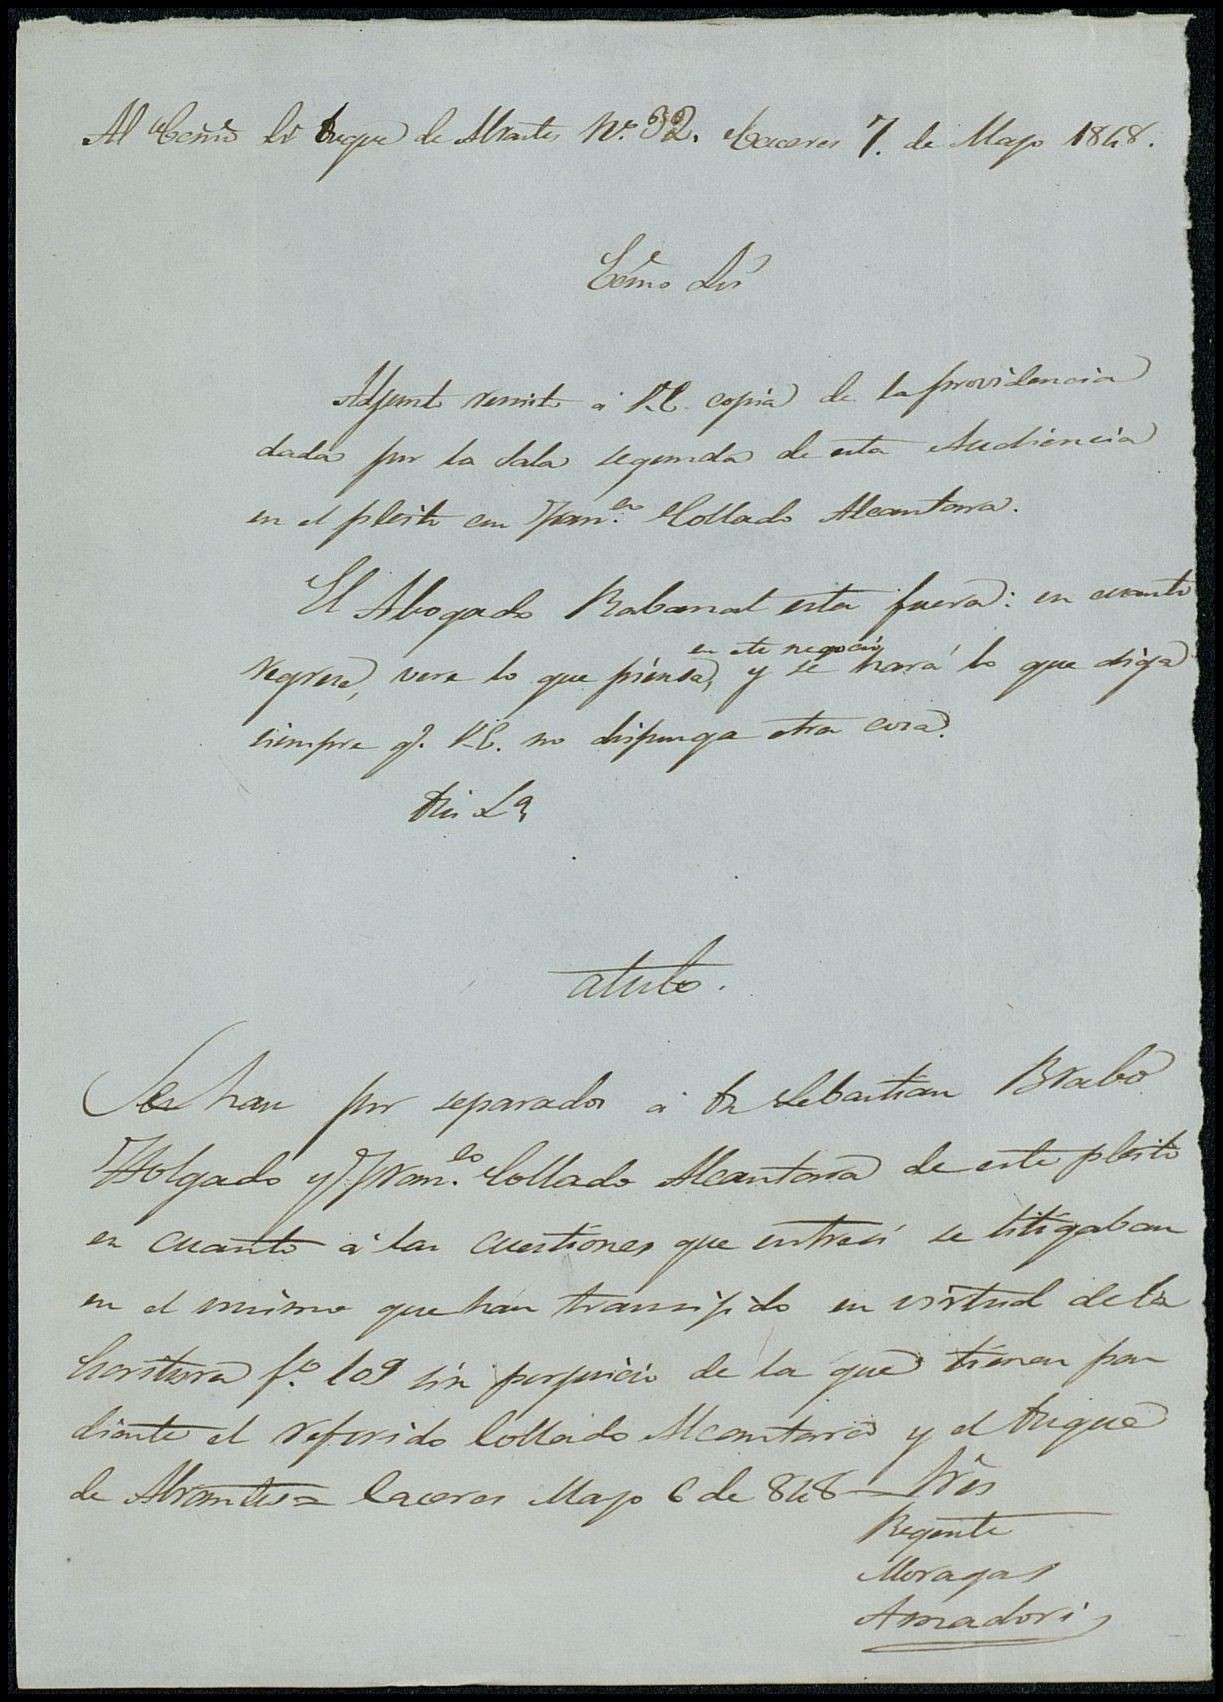 Al Ecmo Sr Duque de Abrantes Nº 32. Caceres 7. de Mayo 1848.
Ecmo Sor
Adjunto remito á V.E. copia de la providencia
dada por la Sala segunda de esta Audiencia
en el pleito con Juan Collado Alcantara.
El Abogado Rabanal esta fuera: en cuanto
en este negocio
regrese, vere lo que piensa, y se hará lo que diga
siempre q. V.E. no disponga otra cosa.
Se han por separados á Dn Sebastian Brabo
Holgado y Collado Alcantara de este pleito
en cuanto á las cuestiones que entresi se litigaban
en el mismo que han transijido en virtud de la
Escritura fº 109 sin perjuicio de la que tienen pen
diente el referido Collado Alcantara y el Duque
de Abrantes = Caceres Mayo 6 de 848 — Sres
Regente
Moragas
Amadori